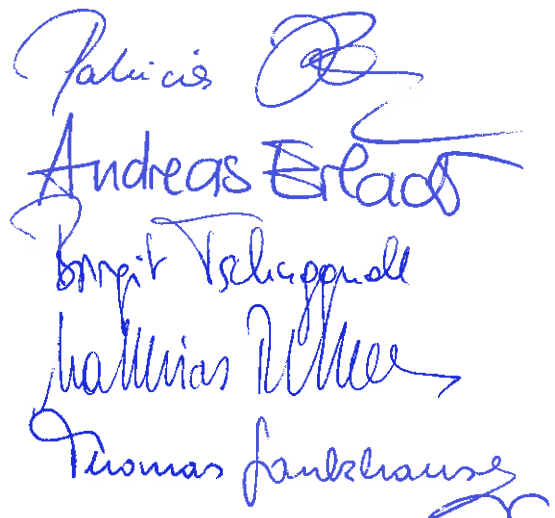 Patricia
Andreas Erlach
Birgit Tschaggnall
Matthias
Thomas Fankhauser